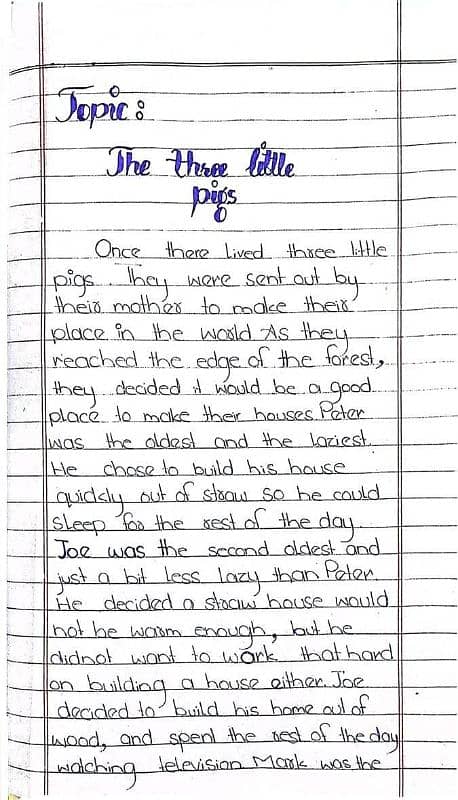 Topic:
The three little
pigs
Once there lived three little
pigs. They were sent out by
their mother to make their
place in the world As they
reached the edge of the forest,
they decided it would be a good
place to make their houses. Peter
was the oldest and the laziest.
He chose to build his house
quickly out of straw so he could
sleep for the rest of the day.
Joe was the second oldest and
just a bit less lazy than Peter.
He decided a straw house would
not be warm enough, but he
didnot want to work that hard
on building a house either. Joe
decided to build his home out of
wood, and spent the rest of the day
watching television Mark was the